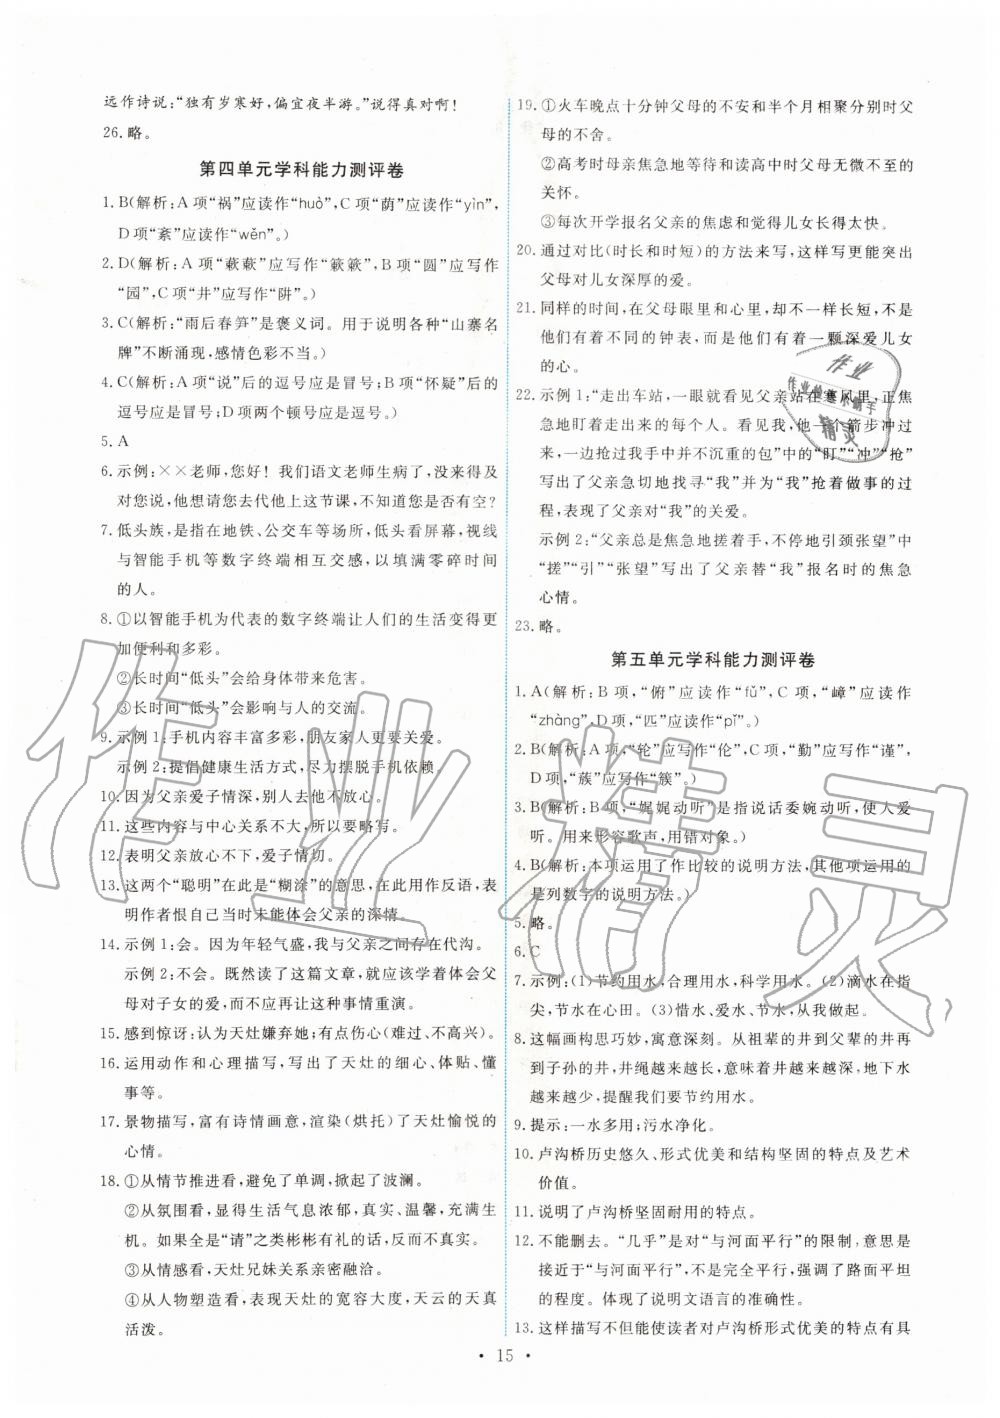 远作诗说:“独有岁寒好,偏宜夜半游。”说得真对啊!
26.略。
第四单元学科能力测评卷
1.B(解析:A项“祸”应读作“huò”,C项“荫”应读作“yìn”,
D项“紊”应读作“wěn”。)
2.D(解析:A项“蔌蔌”应写作“簌簌”,B项“圆”应写作
“园”,C项“井”应写作“阱”。)
3.C(解析:“雨后春笋”是褒义词。用于说明各种“山寨名
牌”不断涌现,感情色彩不当。)
4.C(解析:A项“说”后的逗号应是冒号;B项“怀疑”后的
逗号应是冒号;D项两个顿号应是逗号。)
5.A
6.示例:××老师,您好!我们语文老师生病了,没来得及
对您说,他想请您去代他上这节课,不知道您是否有空?
7.低头族,是指在地铁、公交车等场所,低头看屏幕,视线
与智能手机等数字终端相互交感,以填满零碎时间
的人。
8.①以智能手机为代表的数字终端让人们的生活变得更
加便利和多彩。
②长时间“低头”会给身体带来危害。
③长时间“低头”会影响与人的交流。
9.示例1:手机内容丰富多彩,朋友家人更要关爱。
示例2:提倡健康生活方式,尽力摆脱手机依赖。
10.因为父亲爱子情深,别人去他不放心。
11.这些内容与中心关系不大,所以要略写。
12.表明父亲放心不下,爱子情切。
13.这两个“聪明”在此是“糊涂”的意思,在此用作反语,表
明作者恨自己当时未能体会父亲的深情。
14.示例1:会。因为年轻气盛,我与父亲之间存在代沟。
示例2:不会。既然读了这篇文章,就应该学着体会父
母对子女的爱,而不应再让这种事情重演。
15.感到惊讶:认为天灶嫌弃她;有点伤心(难过、不高兴)。
16.运用动作和心理描写,写出了天灶的细心、体贴、懂
事等。
17.景物描写,富有诗情画意,渲染(烘托)了天灶愉悦的
心情。
18.①从情节推进看,避免了单调,掀起了波澜。
②从氛围看,显得生活气息浓郁,真实、温馨,充满生
机。如果全是“请”之类彬彬有礼的话,反而不真实。
③从情感看,天灶兄妹关系亲密融洽。
④从人物塑造看,表现天灶的宽容大度,天云的天真
活泼。
19.①火车晚点十分钟父母的不安和半个月相聚分别时父
母的不舍。
②高考时母亲焦急地等待和读高中时父母无微不至的
关怀。
③每次开学报名父亲的焦虑和觉得儿女长得太快。
20.通过对比(时长和时短)的方法来写,这样写更能突出
父母对儿女深厚的爱。
21.同样的时间,在父母眼里和心里,却不一样长短,不是
他们有着不同的钟表,而是他们有着一颗深爱儿女
的心。
22.示例1:“走出车站,一眼就看见父亲站在寒风里,正焦
急地盯着走出来的每个人。看见我,他一个箭步冲过
来,一边抢过我手中并不沉重的包”中的“盯”“冲”“抢”
写出了父亲急切地找寻“我”并为“我”抢着做事的过
程,表现了父亲对“我”的关爱。
示例2:“父亲总是焦急地搓着手,不停地引颈张望”中
“搓”“引”“张望”写出了父亲替“我”报名时的焦急
心情。
23.略。
第五单元学科能力测评卷
1.A(解析:B项,“俯”应读作“fǔ”,C项,“嶂”应读作
“zhàng”,D项,“匹”应读作“pǐ”。)
2.B(解析:A项,“轮”应写作“伦”,C项,“勤”应写作“谨”,
D项,“蔟”应写作“簇”。)
3.B(解析:B项,“娓娓动听”是指说话委婉动听,使人爱
听。用来形容歌声,用错对象。)
4.B(解析:本项运用了作比较的说明方法,其他项运用的
是列数字的说明方法。)
5.略。
6.C
7.示例:(1)节约用水,合理用水,科学用水。(2)滴水在指
尖,节水在心田。(3)惜水、爱水、节水,从我做起。
8.这幅画构思巧妙,寓意深刻。从祖辈的井到父辈的井再
到子孙的井,井绳越来越长,井越来越深,地下水
越来越少,提醒我们要节约用水。
9.提示:一水多用;污水净化。
10.卢沟桥历史悠久、形式优美和结构坚固的特点及艺术
价值。
11.说明了卢沟桥坚固耐用的特点。
12.不能删去。“几乎”是对“与河面平行”的限制,意思是
接近于“与河面平行”,不是完全平行,强调了路面平坦
的程度。体现了说明文语言的准确性。
13.这样描写不但能使读者对卢沟桥形式优美的特点有具
• 15 •
作业精灵
作业
作业的小帮手
精灵